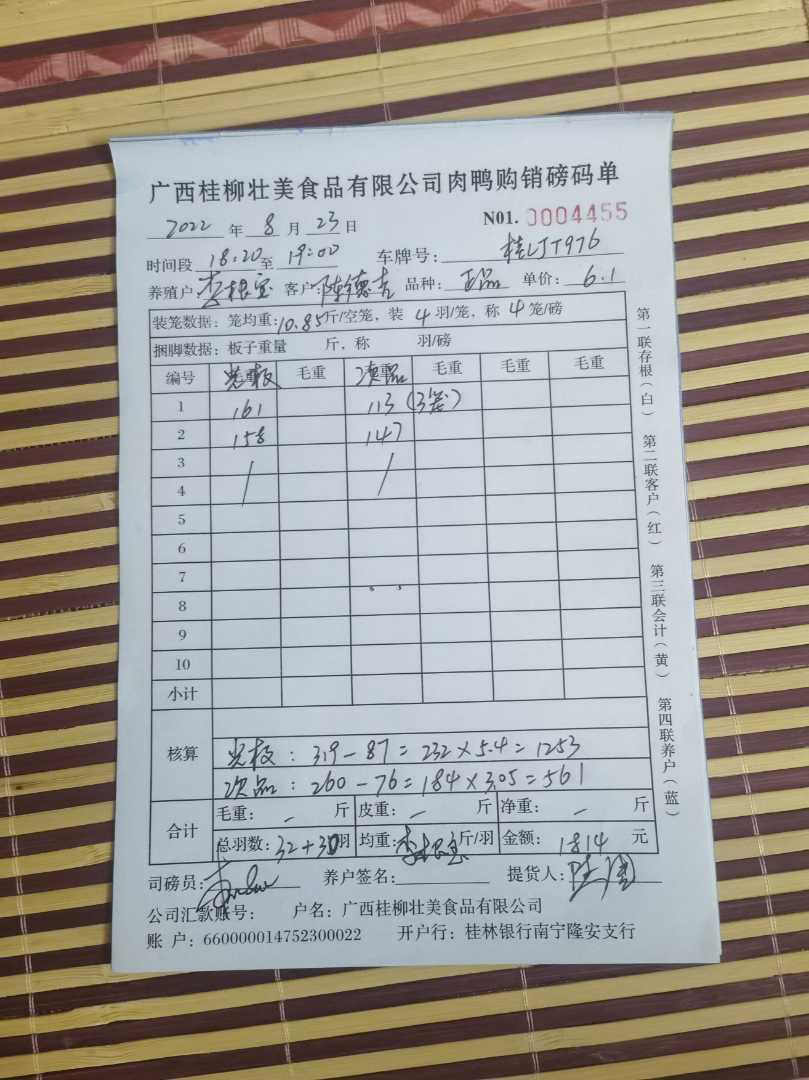 广西桂柳壮美食品有限公司肉鸭购销磅码单
2022 年 8 月 23 日 N01. 0004455
时间段 18:20 至 19:00 车牌号: 桂LJT976
养殖户: 李根宝 客户: 陈德吉 品种: 正品 单价: 6.1
装笼数据: 笼均重: 10.85 斤/空笼, 装 4 羽/笼, 称 4 笼/磅
捆脚数据: 板子重量 斤, 称 羽/磅
编号 光极 毛重 次品 毛重 毛重 毛重
1 161 113 (3笼)
2 158 147
3
4
5
6
7
8
9
10
小计
核算
光极: 319-87=232×5.4=1253
次品: 260-76=184×3.05=561
合计
毛重: - 斤 皮重: - 斤 净重: - 斤
总羽数: 32+30 羽 均重: 斤/羽 金额: 1814 元
司磅员: 养户签名: 李根宝 提货人:
公司汇款账号: 户名: 广西桂柳壮美食品有限公司
账 户: 660000014752300022 开户行: 桂林银行南宁隆安支行
第一联存根(白) 第二联客户(红) 第三联会计(黄) 第四联养户(蓝)